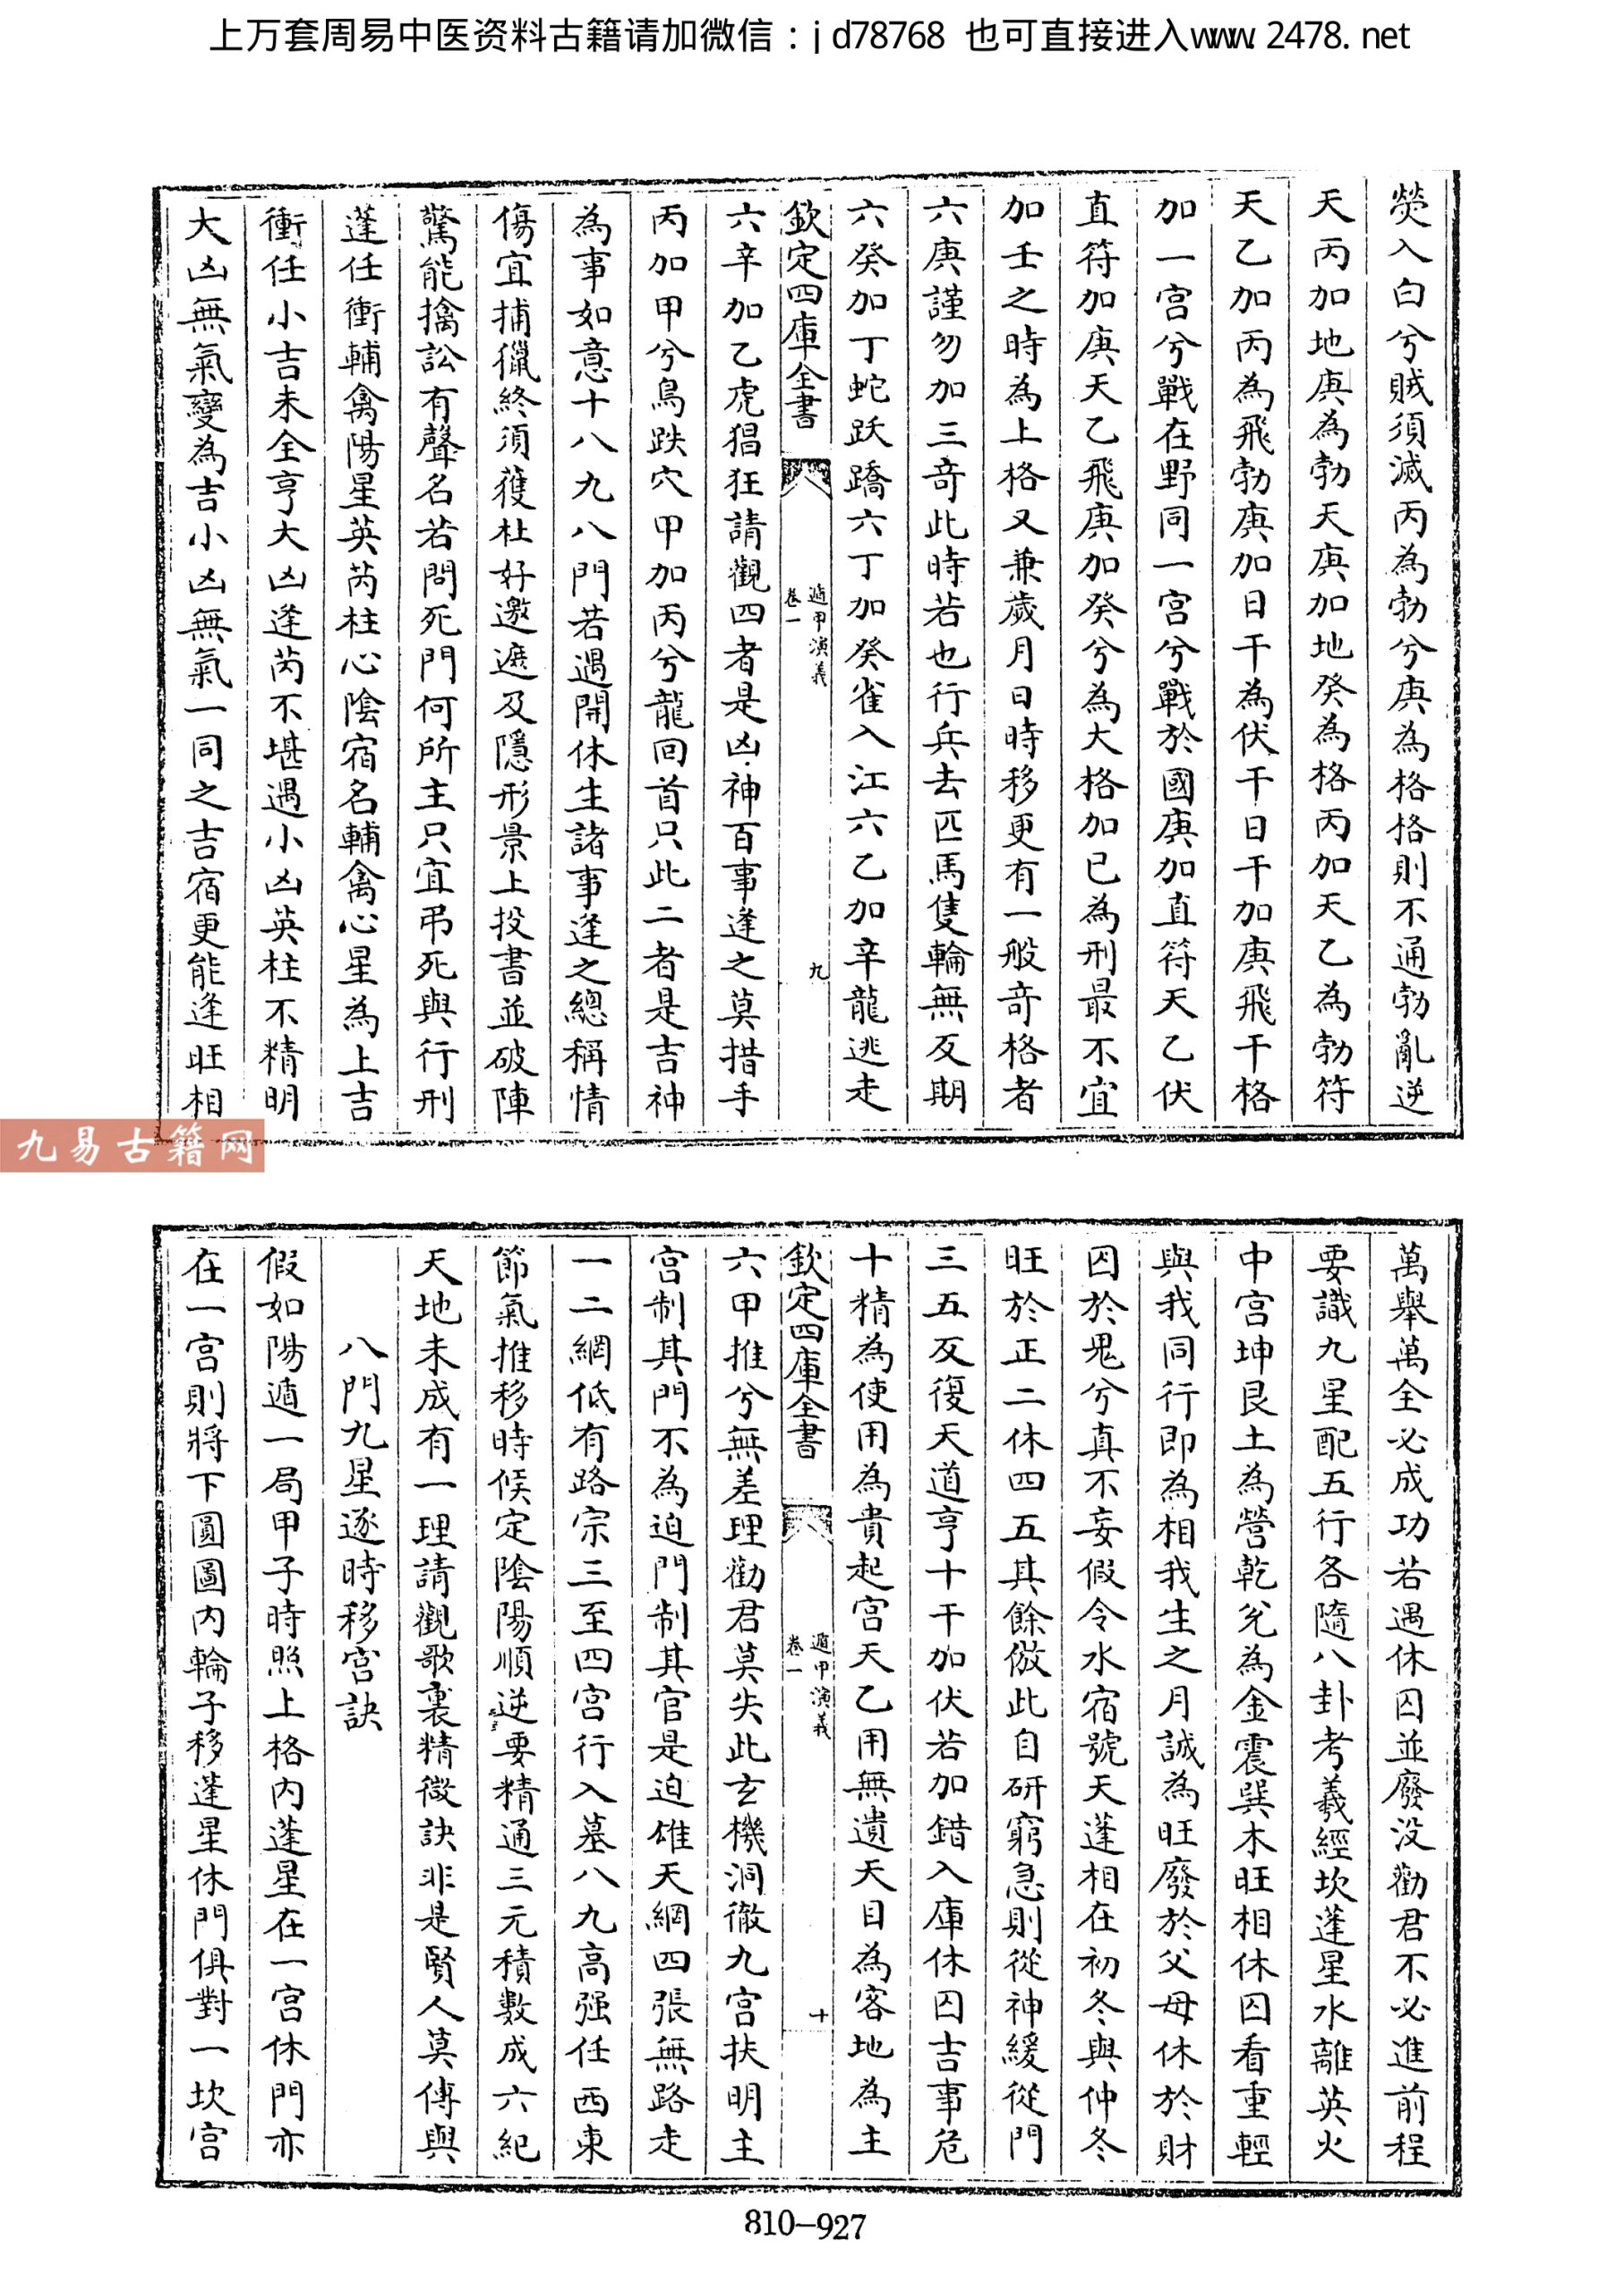 上万套周易中医资料古籍请加微信：jd78768 也可直接进入www.2478.net
熒入白兮賊須滅丙為勃兮庚為格格則不通勃亂逆
天丙加地庚為勃天庚加地癸為格丙加天乙為勃符
天乙加丙為飛勃庚加日干為伏干日干加庚飛干格
加一宫兮戰在野同一宫兮戰於國庚加直符天乙伏
直符加庚天乙飛庚加癸兮為大格加已為刑最不宜
加壬之時為上格又兼歲月日時移更有一般奇格者
六庚謹勿加三奇此時若也行兵去匹馬隻輪無反期
六癸加丁蛇跃蹻六丁加癸雀入江六乙加辛龍逃走
欽定四庫全書
遁甲演義
卷一
九
六辛加乙虎猖狂請觀四者是凶神百事逢之莫措手
丙加甲兮鳥跌穴甲加丙兮龍回首只此二者是吉神
為事如意十八九八門若遇開休生諸事逢之總稱情
傷宜捕獵終須獲杜好邀遮及隱形景上投書並破陣
驚能擒訟有聲名若問死門何所主只宜弔死與行刑
蓬任衝輔禽陽星英芮柱心陰宿名輔禽心星為上吉
衝任小吉未全亨大凶蓬芮不堪遇小凶英柱不精明
大凶無氣變為吉小凶無氣一同之吉宿更能逢旺相
九易古籍网
萬舉萬全必成功若遇休囚並廢没勸君不必進前程
要識九星配五行各隨八卦考羲經坎蓬星水離英火
中宫坤艮土為營乾兌為金震巽木旺相休囚看重輕
與我同行即為相我生之月誠為旺廢於父母休於財
囚於鬼兮真不妄假令水宿號天蓬相在初冬與仲冬
旺於正二休四五其餘倣此自研窮急則從神緩從門
三五反復天道亨十干加伏若加錯入庫休囚吉事危
十精為使用為貴起宫天乙用無遺天目為客地為主
欽定四庫全書
遁甲演義
卷一
十
六甲推兮無差理勸君莫失此玄機洞徹九宫扶明主
宫制其門不為迫門制其官是迫雄天網四張無路走
一二網低有路宗三至四宫行入墓八九高强任西東
節氣推移時候定陰陽順逆要精通三元積數成六紀
天地未成有一理請觀歌裏精微訣非是賢人莫傳與
八門九星逐時移宫訣
假如陽遁一局甲子時照上格内蓬星在一宫休門亦
在一宫則將下圓圖内輪子移蓬星休門俱對一坎宫
810-927